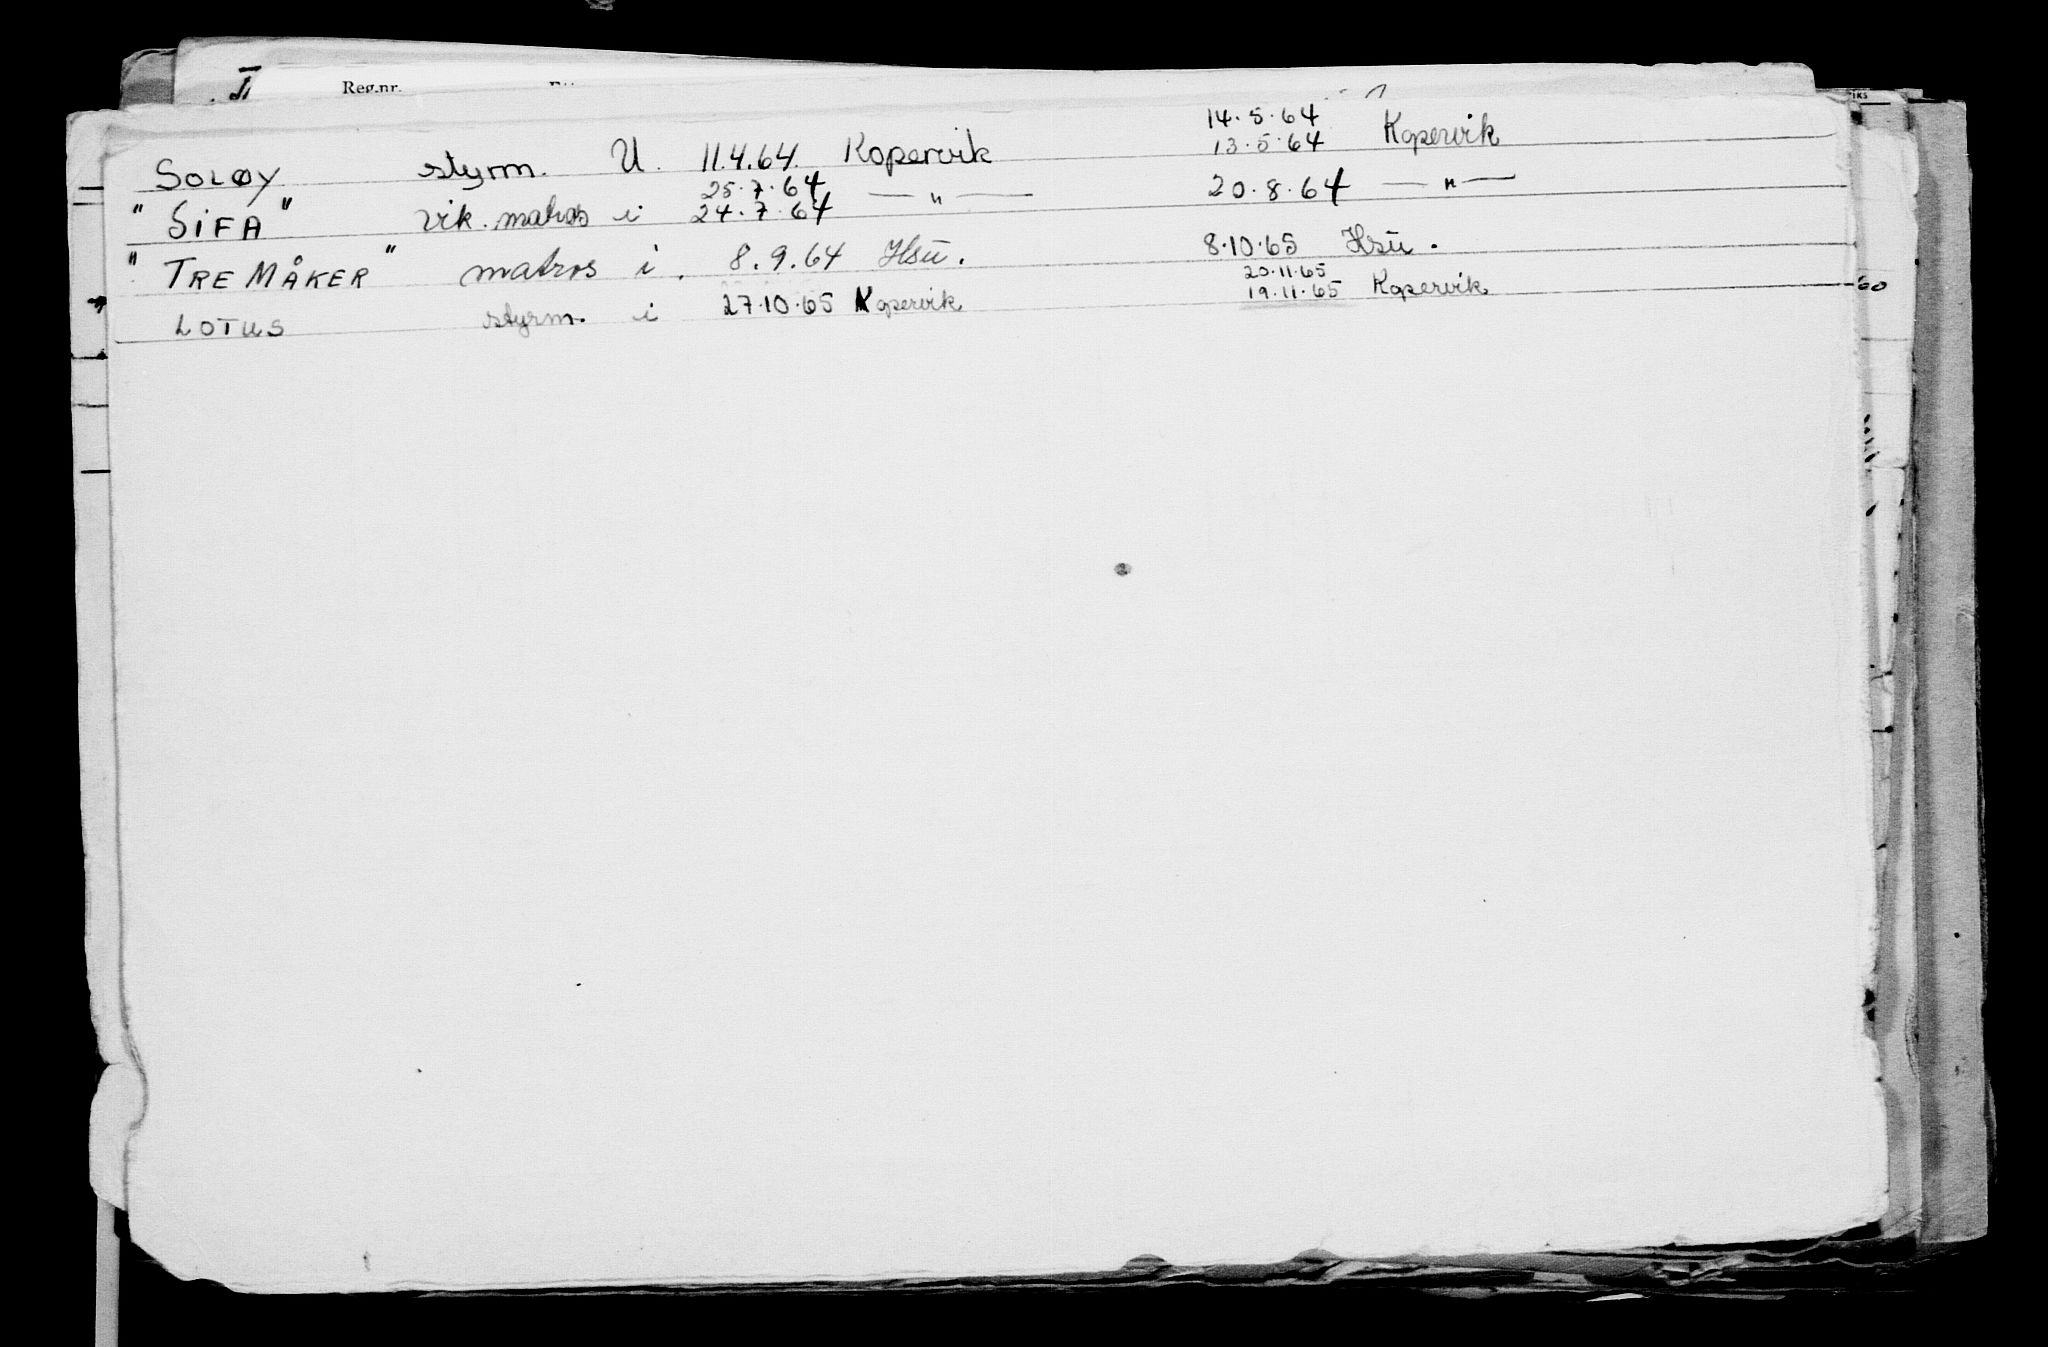 Reg.nr.
14.5.64
SOLØY styrm. U. 11.4.64. Kopervik 13.5.64 Kopervik
25.7.64
"SIFA" vik. matros i 24.7.64 — " — 20.8.64 — " —
"TRE MÅKER" matros i. 8.9.64 Hsu. 8.10.65 Hsu.
20.11.65
LOTUS styrm. i 27.10.65 Kopervik 19.11.65 Kopervik